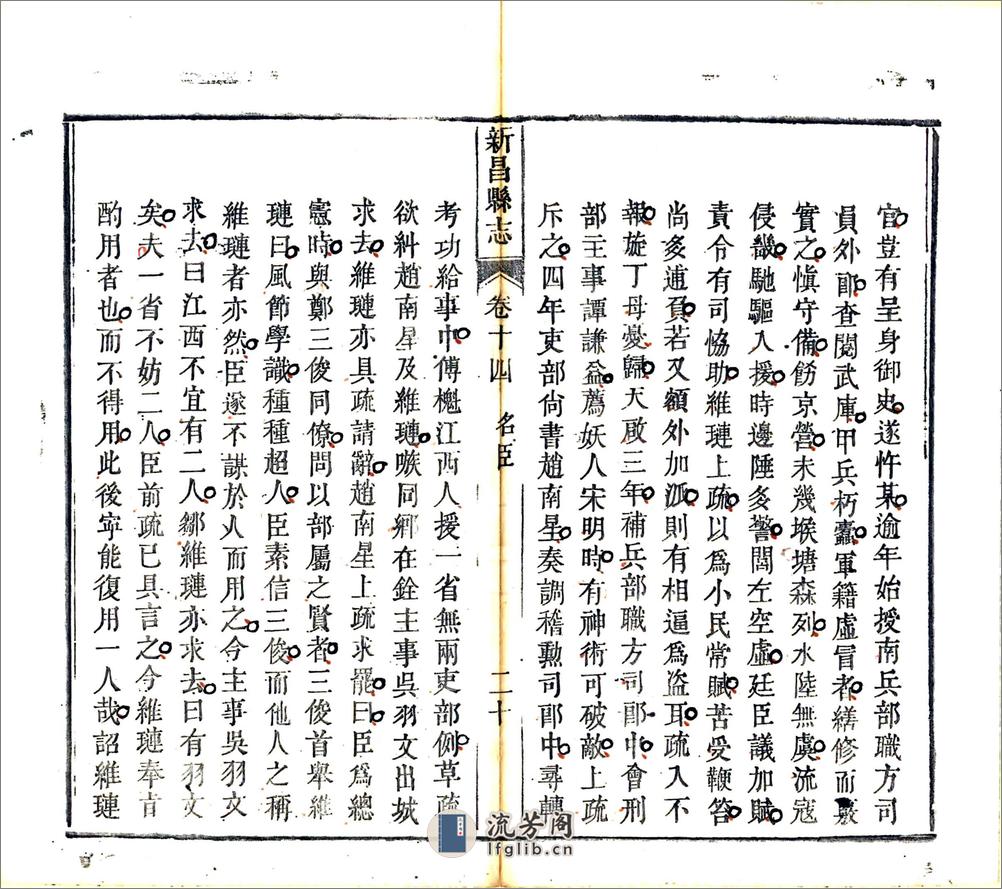 官豈有呈身御史遂忤某逾年始授南兵部職方司
員外郎查閱武庫甲兵朽蠹軍籍虛冒者繕修而覈
實之慎守備飭京營未幾堠塘森列水陸無虞流寇
侵畿馳驅入援時邊陲多警閭左空虛廷臣議加賦
責令有司恊助維璉上疏以爲小民常賦苦受鞭笞
尚多逋負若又額外加派則有相逼爲盗耳疏入不
報旋丁母憂歸天啟三年補兵部職方司郎中會刑
部主事譚謙益薦妖人宋明時有神術可破敵上疏
斥之四年吏部尚書趙南星奏調稽勲司郎中尋轉
新昌縣志
卷十四 名臣
二十
考功給事中傅櫆江西人援一省無兩吏部例草疏
欲糾趙南星及維璉嗾同鄉在銓主事吳羽文出城
求去維璉亦具疏請辭趙南星上疏求罷曰臣爲總
憲時與鄭三俊同僚問以部屬之賢者三俊首舉維
璉曰風節學識種種超人臣素信三俊而他人之稱
維璉者亦然臣遂不謀於人而用之今主事吳羽文
求去曰江西不宜有二人鄒維璉亦求去曰有羽文
矣夫一省不妨二人臣前疏已具言之今維璉奉旨
酌用者也而不得用此後寧能復用一人哉詔維璉
流芳阁
lfglib.cn